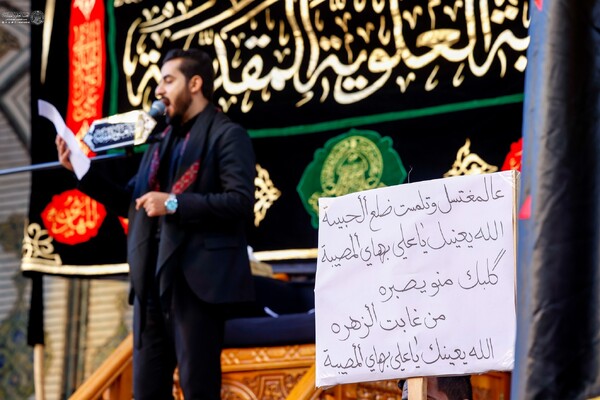 العلوية المقدسة
عالمغتسل وتلمست ضلع الحبيبة
الله يعينك ياعلي بهاي المصيبة
گلبك منو يصبره
من غابت الزهره
الله يعينك ياعلي بهاي المصيبة